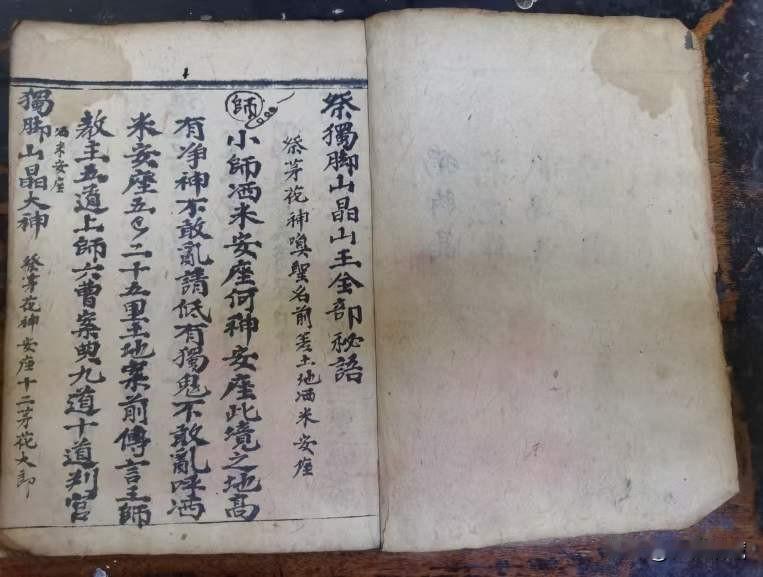 祭獨脚山晶山王全部秘語
祭茅花神嘆聖名前差土地洒米安座
師
小師洒米安座何神安座此境之地高
有净神不敢亂請低有獨鬼不敢亂呼洒
米安座五方二十五里土地案前傳言玉師
教主五道上師六曹案典九道十道判官
洒米安座
獨脚山晶大神
祭茅花神安座十二茅花大郎